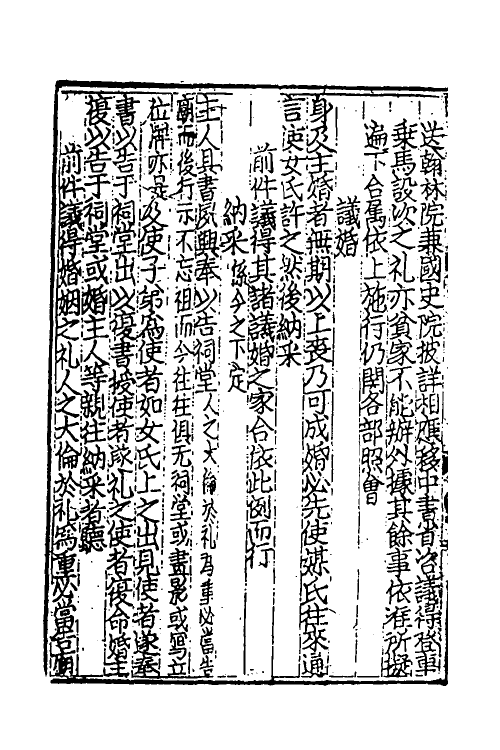 送翰林院兼國史院披詳相應移中書省咨議得登車
乘馬設次之礼亦貧家不能辦外據其餘事依准所擬
遍下合属依上施行仍関各部照會
議婚
身及主婚者無期以上喪乃可成婚必先使媒氏往來通
言使女氏許之然後納采
前件議得其諸議婚之家合依此例而行
納采係今之下定
主人具書夙興奉以告祠堂人之大倫於礼為重必當告
廟而後行示不忘祖而今往往俱无祠堂或畫影或寫立
位牌亦是及使子弟為使者如女氏女氏主人出見使者遂奉
書以告于祠堂出以復書授使者遂礼之使者復命婚主
復以告于祠堂或婚主人等親往納采者聽
前件議得婚姻之礼人之大倫於礼為重必當告廟